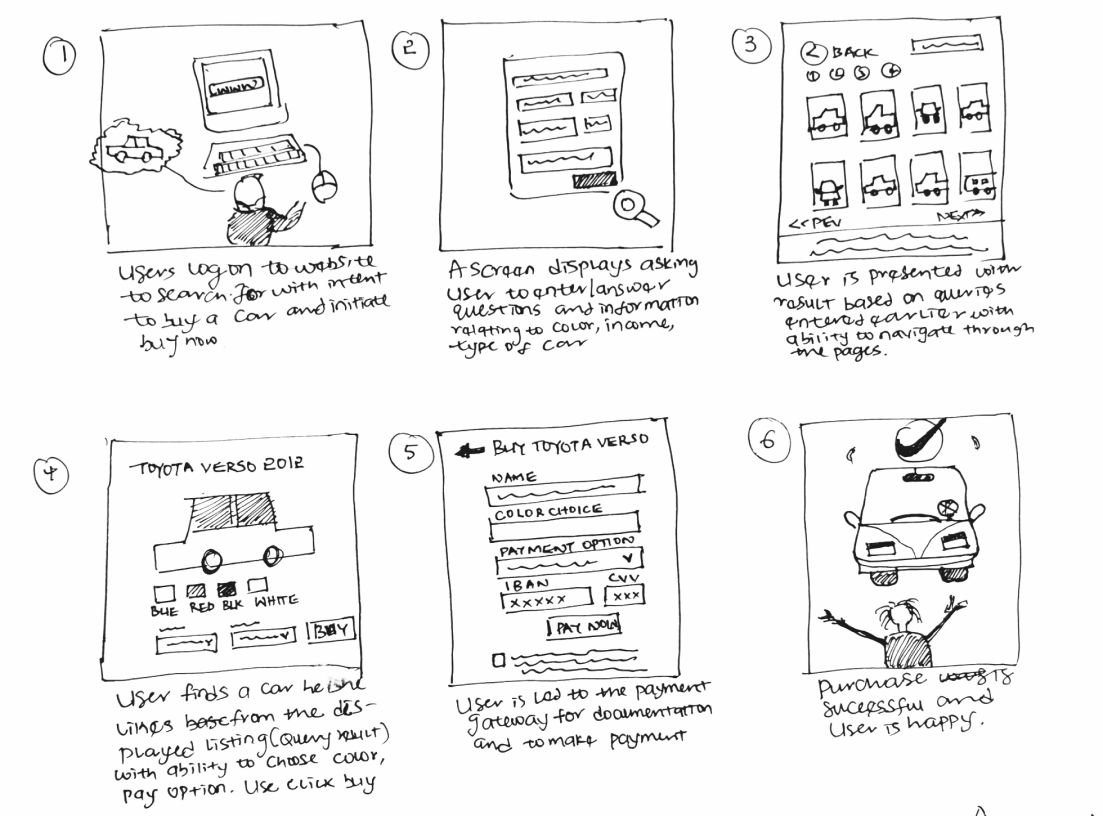 1
WWW
Users log on to website
to search for with intent
to buy a car and initiate
buy now
2
A screen displays asking
user to enter/answer
questions and information
relating to color, income,
type of car
3
BACK
1 2 3 4
<<PEV NEXT>>
User is presented with
result based on queries
entered earlier with
ability to navigate through
the pages.
4
TOYOTA VERSO 2012
BUE RED BLK WHITE
BUY
User finds a car he/she
likes base from the dis-
played listing (Query result)
with ability to choose color,
pay option. Use click buy
5
BUY TOYOTA VERSO
NAME
COLOR CHOICE
PAYMENT OPTION
IBAN CVV
XXXXX XXX
PAY NOW
User is led to the payment
gateway for documentation
and to make payment
6
Purchase was is
sucessful and
User is happy.